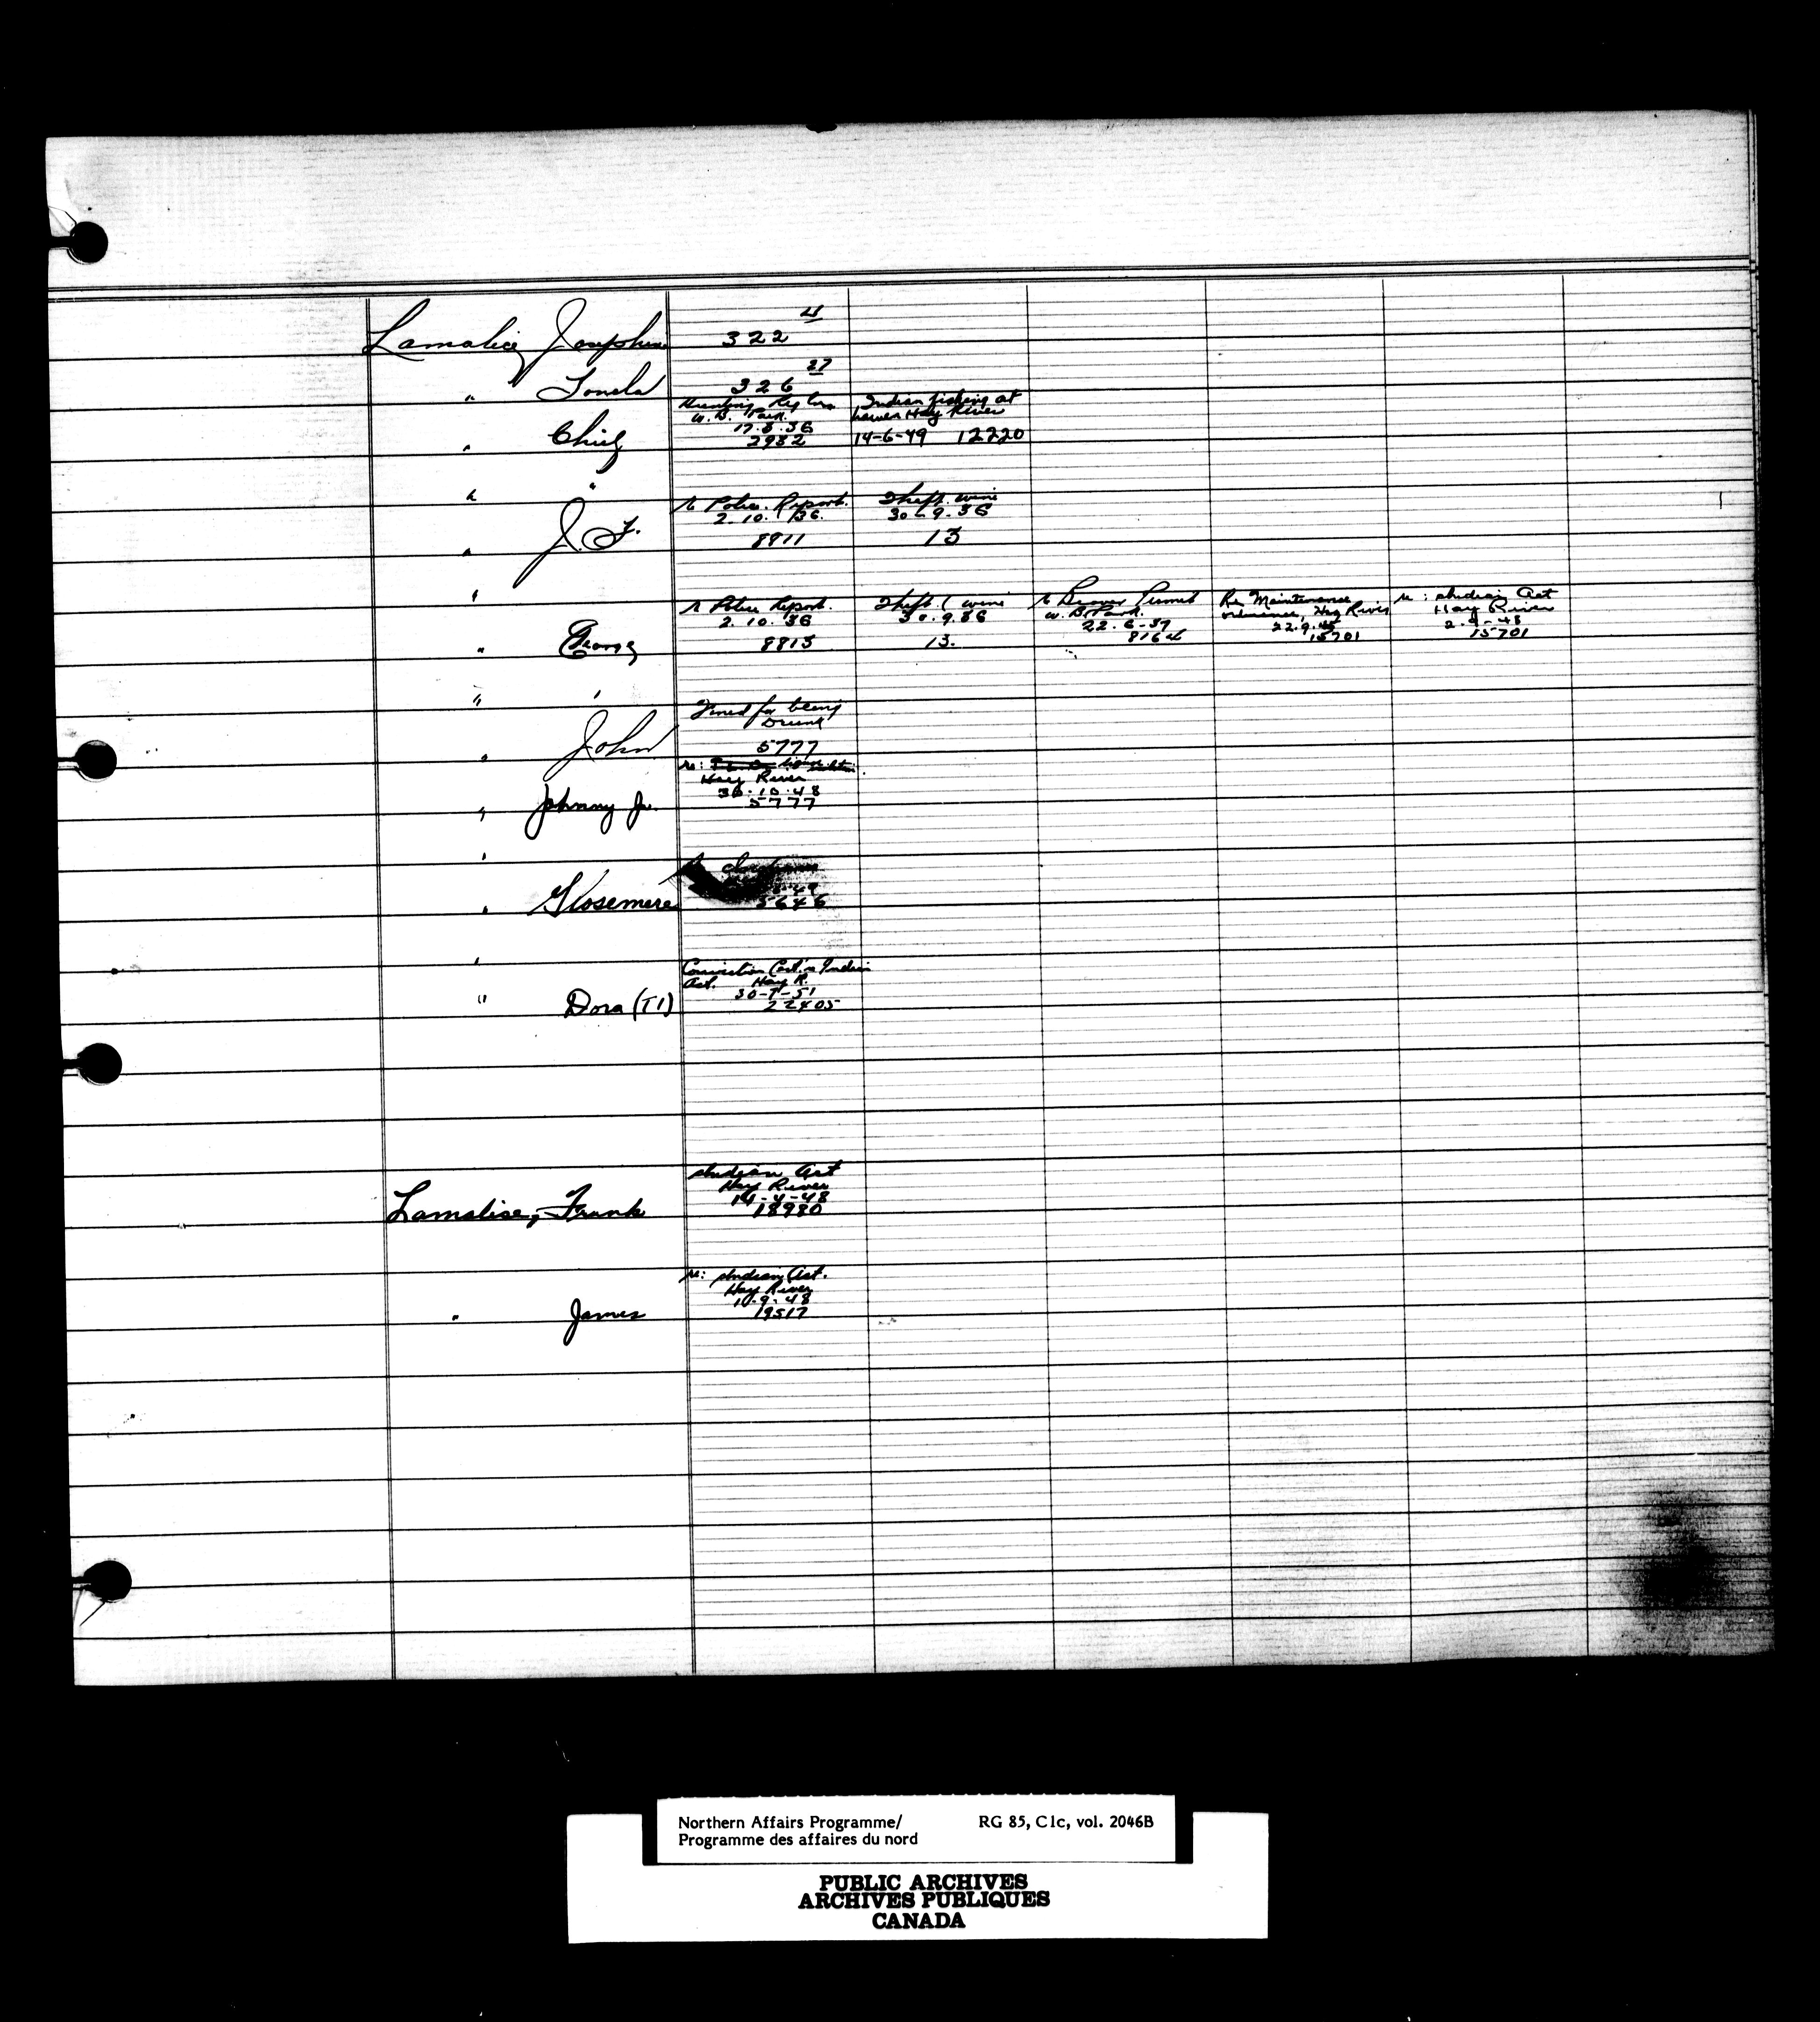 4
Lamalice Josephine 322
27
" 326
Hunting Reg'lns Indian fishing at
W. B. Park. Lower Hay River
17.8.36
" Chief 2982 14-6-49 12220
" "
re Police Report. Theft wine
2.10.36 30.9.36
" J. F. 8811 13
"
re Police Report. Theft wine re Beaver Permit Re Maintenance re: Indian Act
2.10.36 30.9.36 W. B. Park. Ordinance, Hay River Hay River
22.6-37 22.9.45
" George 8813 13. 15701 15701
" "
Fined for being
Drunk
" John 5777
re:
Hay River
30.10.48
" Johnny Jr. 5777
"
" 5646
"
Conviction Indian
Act. Hay R.
" Dora (T1) 22405
Indian Act
Hay River
14-4-48
Lamalise, Frank 18980
re: Indian Act.
Hay River
10.9.48
" James 19517
Northern Affairs Programme/ RG 85, C1c, vol. 2046B
Programme des affaires du nord
PUBLIC ARCHIVES
ARCHIVES PUBLIQUES
CANADA